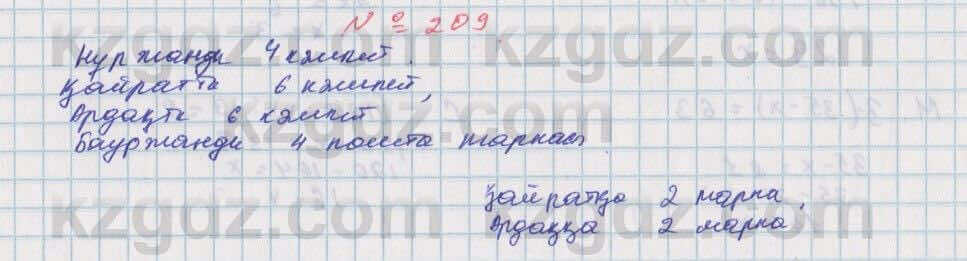 № 209.
Нуржанда 4 кәмпит.
Қайратта 6 кәмпит,
Ардақта 6 кәмпит
Бауржанда 4 пошта маркасы
Қайратқа 2 марка,
Ардаққа 2 марка
kzgdz.com